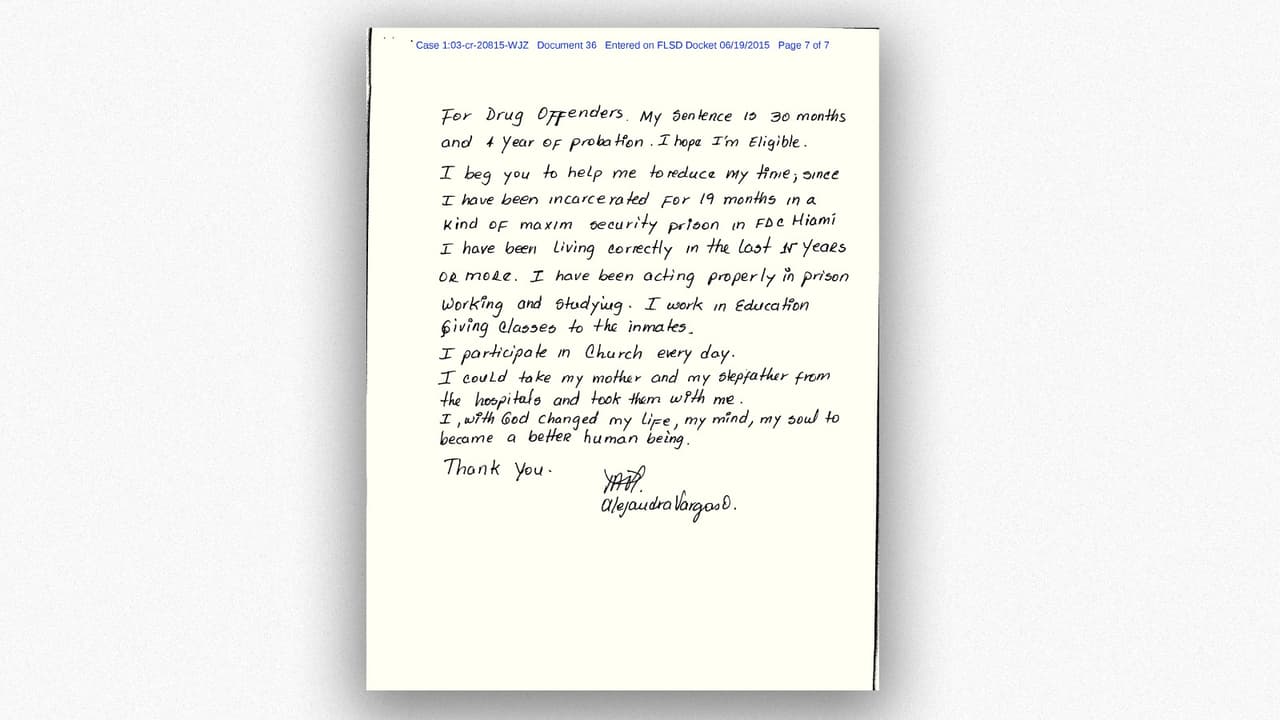 Case 1:03-cr-20815-WJZ Document 36 Entered on FLSD Docket 06/19/2015 Page 7 of 7
For Drug Offenders. My Sentence is 30 months
and 1 Year of probation. I hope I'm Eligible.
I beg you to help me to reduce my time; since
I have been incarcerated for 19 months in a
kind of maxim security prison in FDC Miami
I have been living correctly in the last Years
or more. I have been acting properly in prison
Working and studying. I work in Education
Giving Classes to the inmates.
I participate in Church every day.
I could take my mother and my stepfather from
the hospitals and took them with me.
I, with God changed my life, my mind, my soul to
became a better human being.
Thank You.
Alejandra Vargas O.